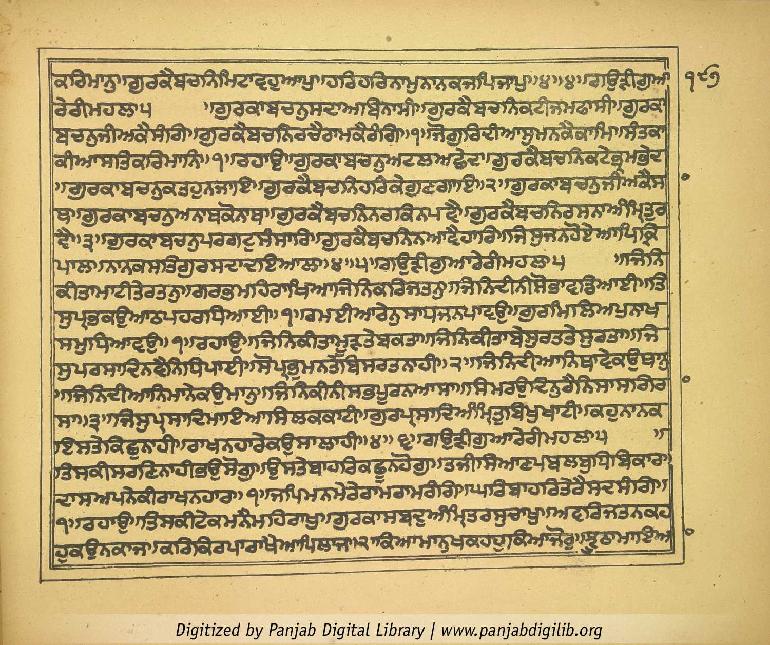 ਕਰਿਮਾਨੁ॥ਗੁਰਕੈਬਚਨਿਮਿਟਾਵਹੁਆਪੁ॥ਹਰਿਹਰਿਨਾਮੁਨਾਨਕਜਪਿਜਾਪੁ॥੪॥੪॥ਗਉੜੀਗੁਆ
ਰੇਰੀਮਹਲਾ੫ ॥ਗੁਰਕਾਬਚਨੁਸਦਾਅਬਿਨਾਸੀ॥ਗੁਰਕੈਬਚਨਿਕਟੀਜਮਫਾਸੀ॥ਗੁਰਕਾ
ਬਚਨੁਜੀਅਕੈਸੰਗਿ॥ਗੁਰਕੈਬਚਨਿਰਚੈਰਾਮਕੈਰੰਗਿ॥੧॥ਜੋਗੁਰਿਦੀਆਸੁਮਨਕੈਕਾਮਿ॥ਸੰਤਕਾ
ਕੀਆਸਤਿਕਰਿਮਾਨਿ॥੧॥ਰਹਾਉ॥ਗੁਰਕਾਬਚਨੁਅਟਲਅਛੇਦ॥ਗੁਰਕੈਬਚਨਿਕਟੇਭ੍ਰਮਭੇਦ
॥ਗੁਰਕਾਬਚਨੁਕਤਹੁਨਜਾਇ॥ਗੁਰਕੈਬਚਨਿਹਰਿਕੇਗੁਣਗਾਇ॥੨॥ਗੁਰਕਾਬਚਨੁਜੀਅਕੈਸਾ
ਥ॥ਗੁਰਕਾਬਚਨੁਅਨਾਥਕੋਨਾਥ॥ਗੁਰਕੈਬਚਨਿਨਰਕਿਨਪਵੈ॥ਗੁਰਕੈਬਚਨਿਰਸਨਾਅੰਮ੍ਰਿਤੁਰ
ਵੈ॥੩॥ਗੁਰਕਾਬਚਨੁਪਰਗਟੁਸੰਸਾਰਿ॥ਗੁਰਕੈਬਚਨਿਨਆਵੈਹਾਰਿ॥ਜਿਸੁਜਨਹੋਏਆਪਿਕ੍ਰਿ
ਪਾਲ॥ਨਾਨਕਸਤਿਗੁਰਸਦਾਦਇਆਲ॥੪॥੫॥ਗਉੜੀਗੁਆਰੇਰੀਮਹਲਾ੫ ॥ਜਿਨਿ
ਕੀਤਾਮਾਟੀਤੇਰਤਨੁ॥ਗਰਭਮਹਿਰਾਖਿਆਜਿਨਿਕਰਿਜਤਨੁ॥ਜਿਨਿਦੀਨੀਸੋਭਾਵਡਿਆਈ॥ਤਿ
ਸੁਪ੍ਰਭਕਉਆਠਪਹਰਧਿਆਈ॥੧॥ਰਮਈਆਰੇਨੁਸਾਧਜਨਪਾਵਉ॥ਗੁਰਮਿਲਿਅਪੁਨਾਖ
ਸਮੁਧਿਆਵਉ॥੧॥ਰਹਾਉ॥ਜਿਨਿਕੀਤਾਮੂੜਤੇਬਕਤਾ॥ਜਿਨਿਕੀਤਾਬੇਸੁਰਤਤੇਸੁਰਤਾ॥ਜਿ
ਸੁਪਰਸਾਦਿਨਵੈਨਿਧਿਪਾਈ॥ਸੋਪ੍ਰਭੁਮਨਤੇਬਿਸਰਤਨਾਹੀ॥੨॥ਜਿਨਿਦੀਆਨਿਥਾਵੇਕਉਥਾਨੁ
॥ਜਿਨਿਦੀਆਨਿਮਾਨੇਕਉਮਾਨੁ॥ਜਿਨਿਕੀਨੀਸਭਪੂਰਨਆਸਾ॥ਸਿਮਰਉਦਿਨੁਰੈਨਿਸਾਸਗਿਰਾ
ਸਾ॥੩॥ਜਿਸੁਪ੍ਰਸਾਦਿਮਾਇਆਸਿਲਕਕਾਟੀ॥ਗੁਰਪ੍ਰਸਾਦਿਅੰਮ੍ਰਿਤੁਬਿਖੁਖਾਟੀ॥ਕਹੁਨਾਨਕ
ਇਸਤੇਕਿਛੁਨਾਹੀ॥ਰਾਖਨਹਾਰੇਕਉਸਾਲਾਹੀ॥੪॥੬॥ਗਉੜੀਗੁਆਰੇਰੀਮਹਲਾ੫ ॥
ਤਿਸਕੀਸਰਣਿਨਾਹੀਭਉਸੋਗੁ॥ਉਸਤੇਬਾਹਰਿਕਛੂਨਹੋਗੁ॥ਤਜੀਸਿਆਣਪਬਲਬੁਧਿਬਿਕਾਰ॥
ਦਾਸਅਪਨੇਕੀਰਾਖਨਹਾਰ॥੧॥ਜਪਿਮਨਮੇਰੇਰਾਮਰਾਮਰੰਗਿ॥ਘਰਿਬਾਹਰਿਤੇਰੈਸਦਸੰਗਿ॥
੧॥ਰਹਾਉ॥ਤਿਸਕੀਟੇਕਮਨੈਮਹਿਰਾਖੁ॥ਗੁਰਕਾਸਬਦੁਅੰਮ੍ਰਿਤਰਸੁਚਾਖੁ॥ਅਵਰਿਜਤਨਕਹ
ਹੁਕਉਨਕਾਜ॥ਕਰਿਕਿਰਪਾਰਾਖੈਆਪਿਲਾਜ॥੨॥ਕਿਆਮਾਨੁਖਕਹਹੁਕਿਆਜੋਰੁ॥ਝੂਠਾਮਾਇਆ
Digitized by Panjab Digital Library | www.panjabdigilib.org